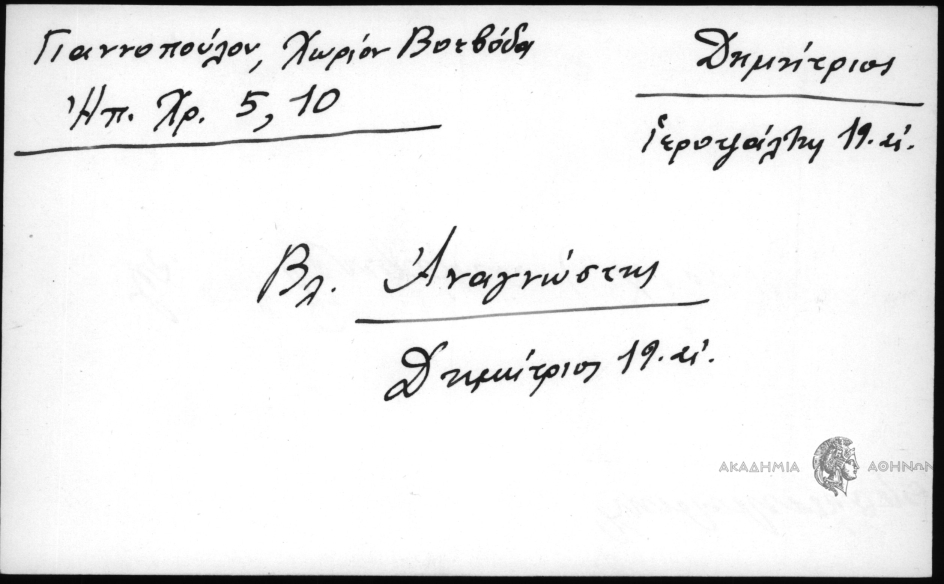 Γιαννοπούλου, Χωρίον Βοεβόδα
Ἠπ. Χρ. 5, 10
Δημήτριος
ἱεροψάλτης 19. αἰ.
Βλ. Ἀναγνώστης
Δημήτριος 19. αἰ.
ΑΚΑΔΗΜΙΑ ΑΘΗΝΩΝ